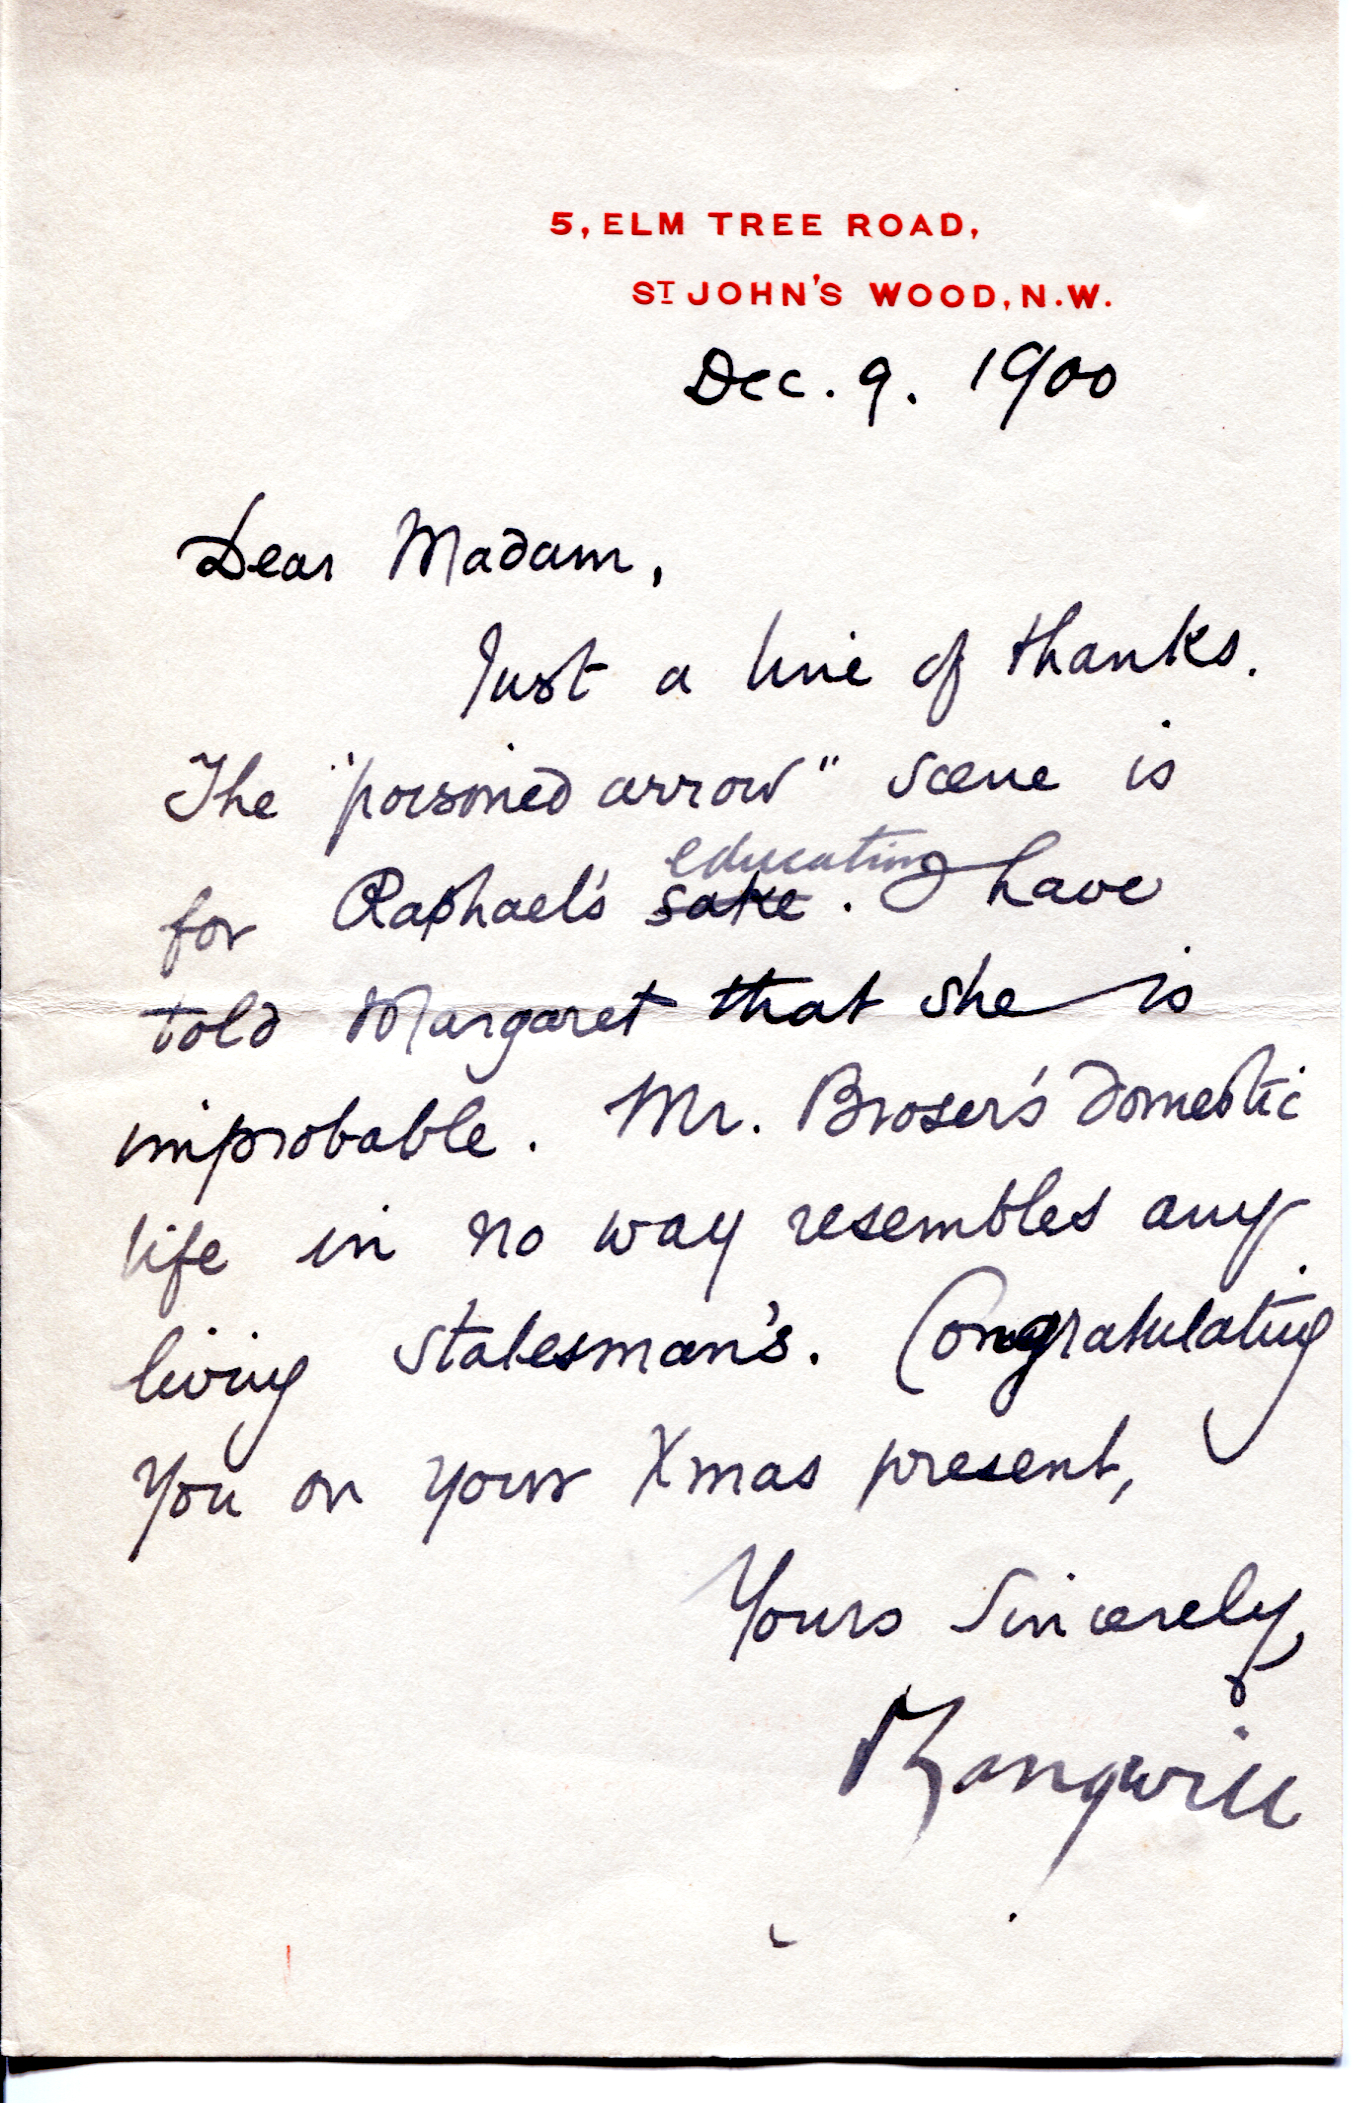 5, ELM TREE ROAD,
ST JOHN'S WOOD, N.W.
Dec. 9. 1900
Dear Madam,
Just a line of thanks.
The "poisoned arrow" scene is
education
for Raphael's sake. I have
told Margaret that she is
improbable. Mr. Broser's domestic
life in no way resembles any
living statesman's. Congratulating
you on your Xmas present,
Yours sincerely,
I Zangwill